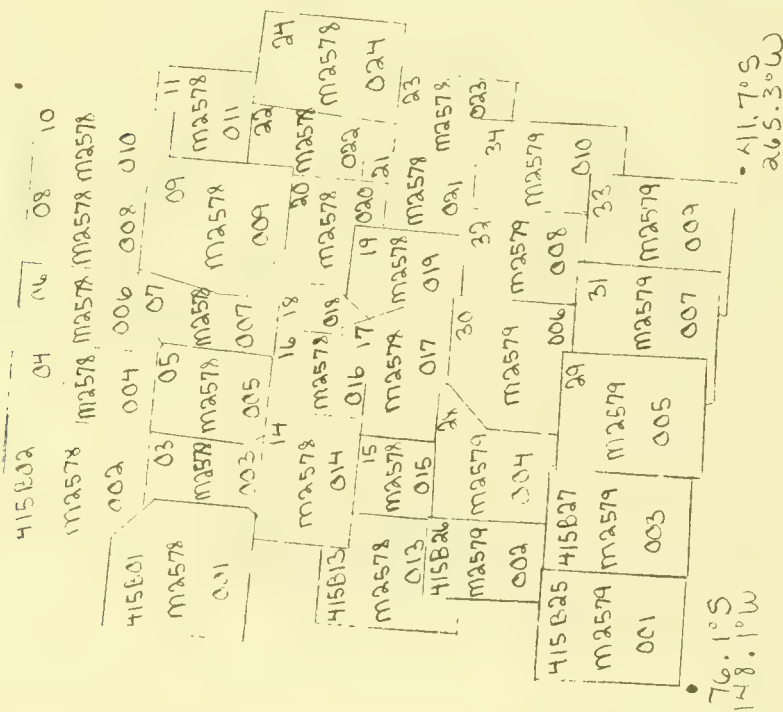 415B02
m2578
002
04
m2578
004
06
m2578
006
08
m2578
008
10
m2578
010
415B01
m2578
001
03
m2578
003
05
m2578
005
07
m2578
007
09
m2578
009
11
m2578
011
14
m2578
014
16
m2578
016
18
018
20
m2578
020
22
m2578
022
24
m2578
024
415B13
m2578
013
15
m2578
015
17
m2578
017
19
m2578
019
21
m2578
021
23
m2578
023
415B26
m2579
002
m2579
004
30
m2579
006
32
m2579
008
34
m2579
010
415B25
m2579
001
415B27
m2579
003
29
m2579
005
31
m2579
007
33
m2579
009
76.1°S
148.1°W
41.7°S
265.3°W